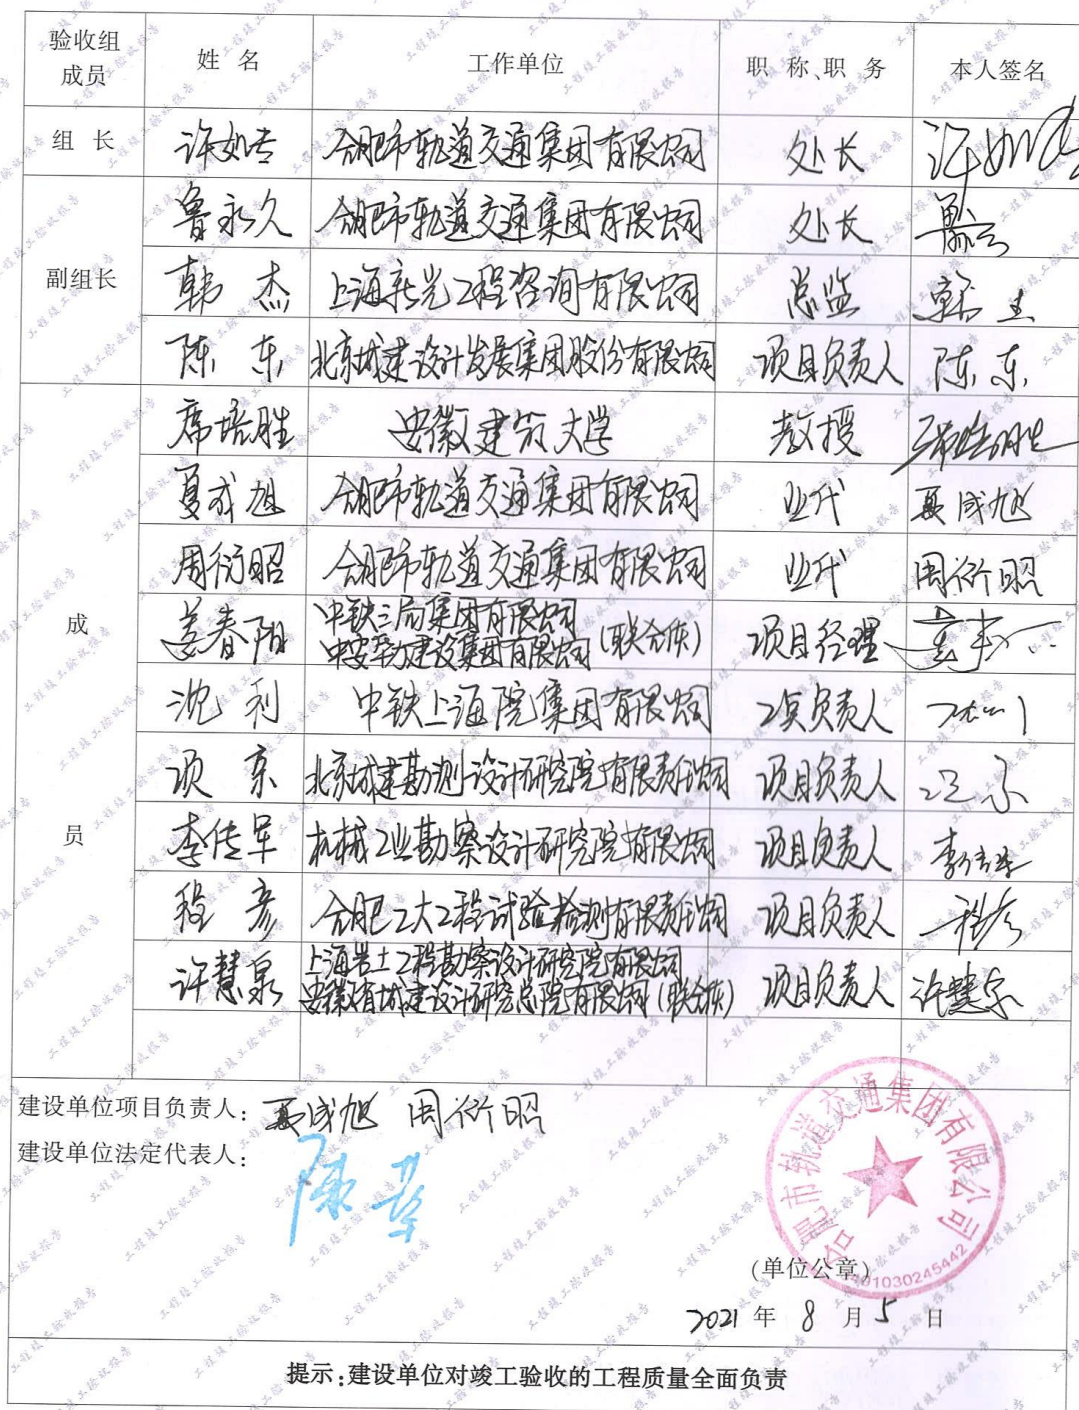 验收组成员 姓 名 工作单位 职 称、职 务 本人签名
组 长 许如专 合肥市轨道交通集团有限公司 处长
副组长
鲁永久 合肥市轨道交通集团有限公司 处长
韩 杰 上海新光工程咨询有限公司 总监
陈 东 北京城建设计发展集团股份有限公司 项目负责人 陈东
成 员
席培胜 安徽建筑大学 教授 席培胜
夏成旭 合肥市轨道交通集团有限公司 业代 夏成旭
周衍昭 合肥市轨道交通集团有限公司 业代 周衍昭
姜春阳 中铁三局集团有限公司
中安华力建设集团有限公司(联合体) 项目经理
沈 利 中铁上海院集团有限公司 项负责人
项 京 北京城建勘测设计研究院有限责任公司 项目负责人
李传军 机械工业勘察设计研究院有限公司 项目负责人 李传军
程 彦 合肥工大工程试验检测有限责任公司 项目负责人 程彦
许慧泉 上海岩土工程勘察设计研究院有限公司
安徽省城建设计研究总院有限公司(联合体) 项目负责人 许慧泉
建设单位项目负责人: 夏成旭 周衍昭
建设单位法定代表人:
合肥市轨道交通集团有限公司
(单位公章)
2021 年 8 月 5 日
提示:建设单位对竣工验收的工程质量全面负责
工程竣工验收报告